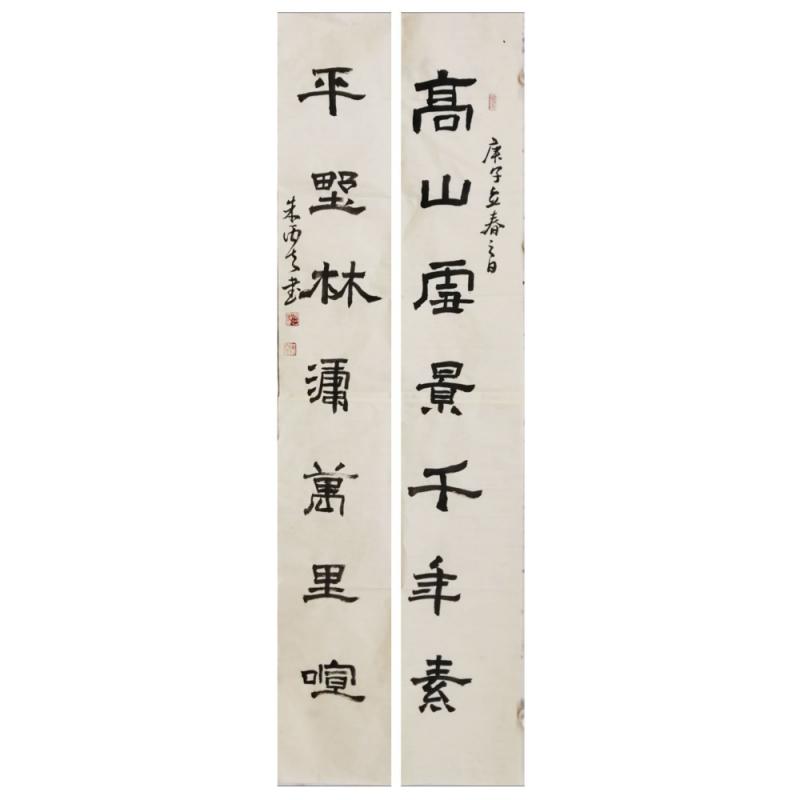 高山虛景千年素
庚子立春之日
平野林濤萬里喧
朱丙之書